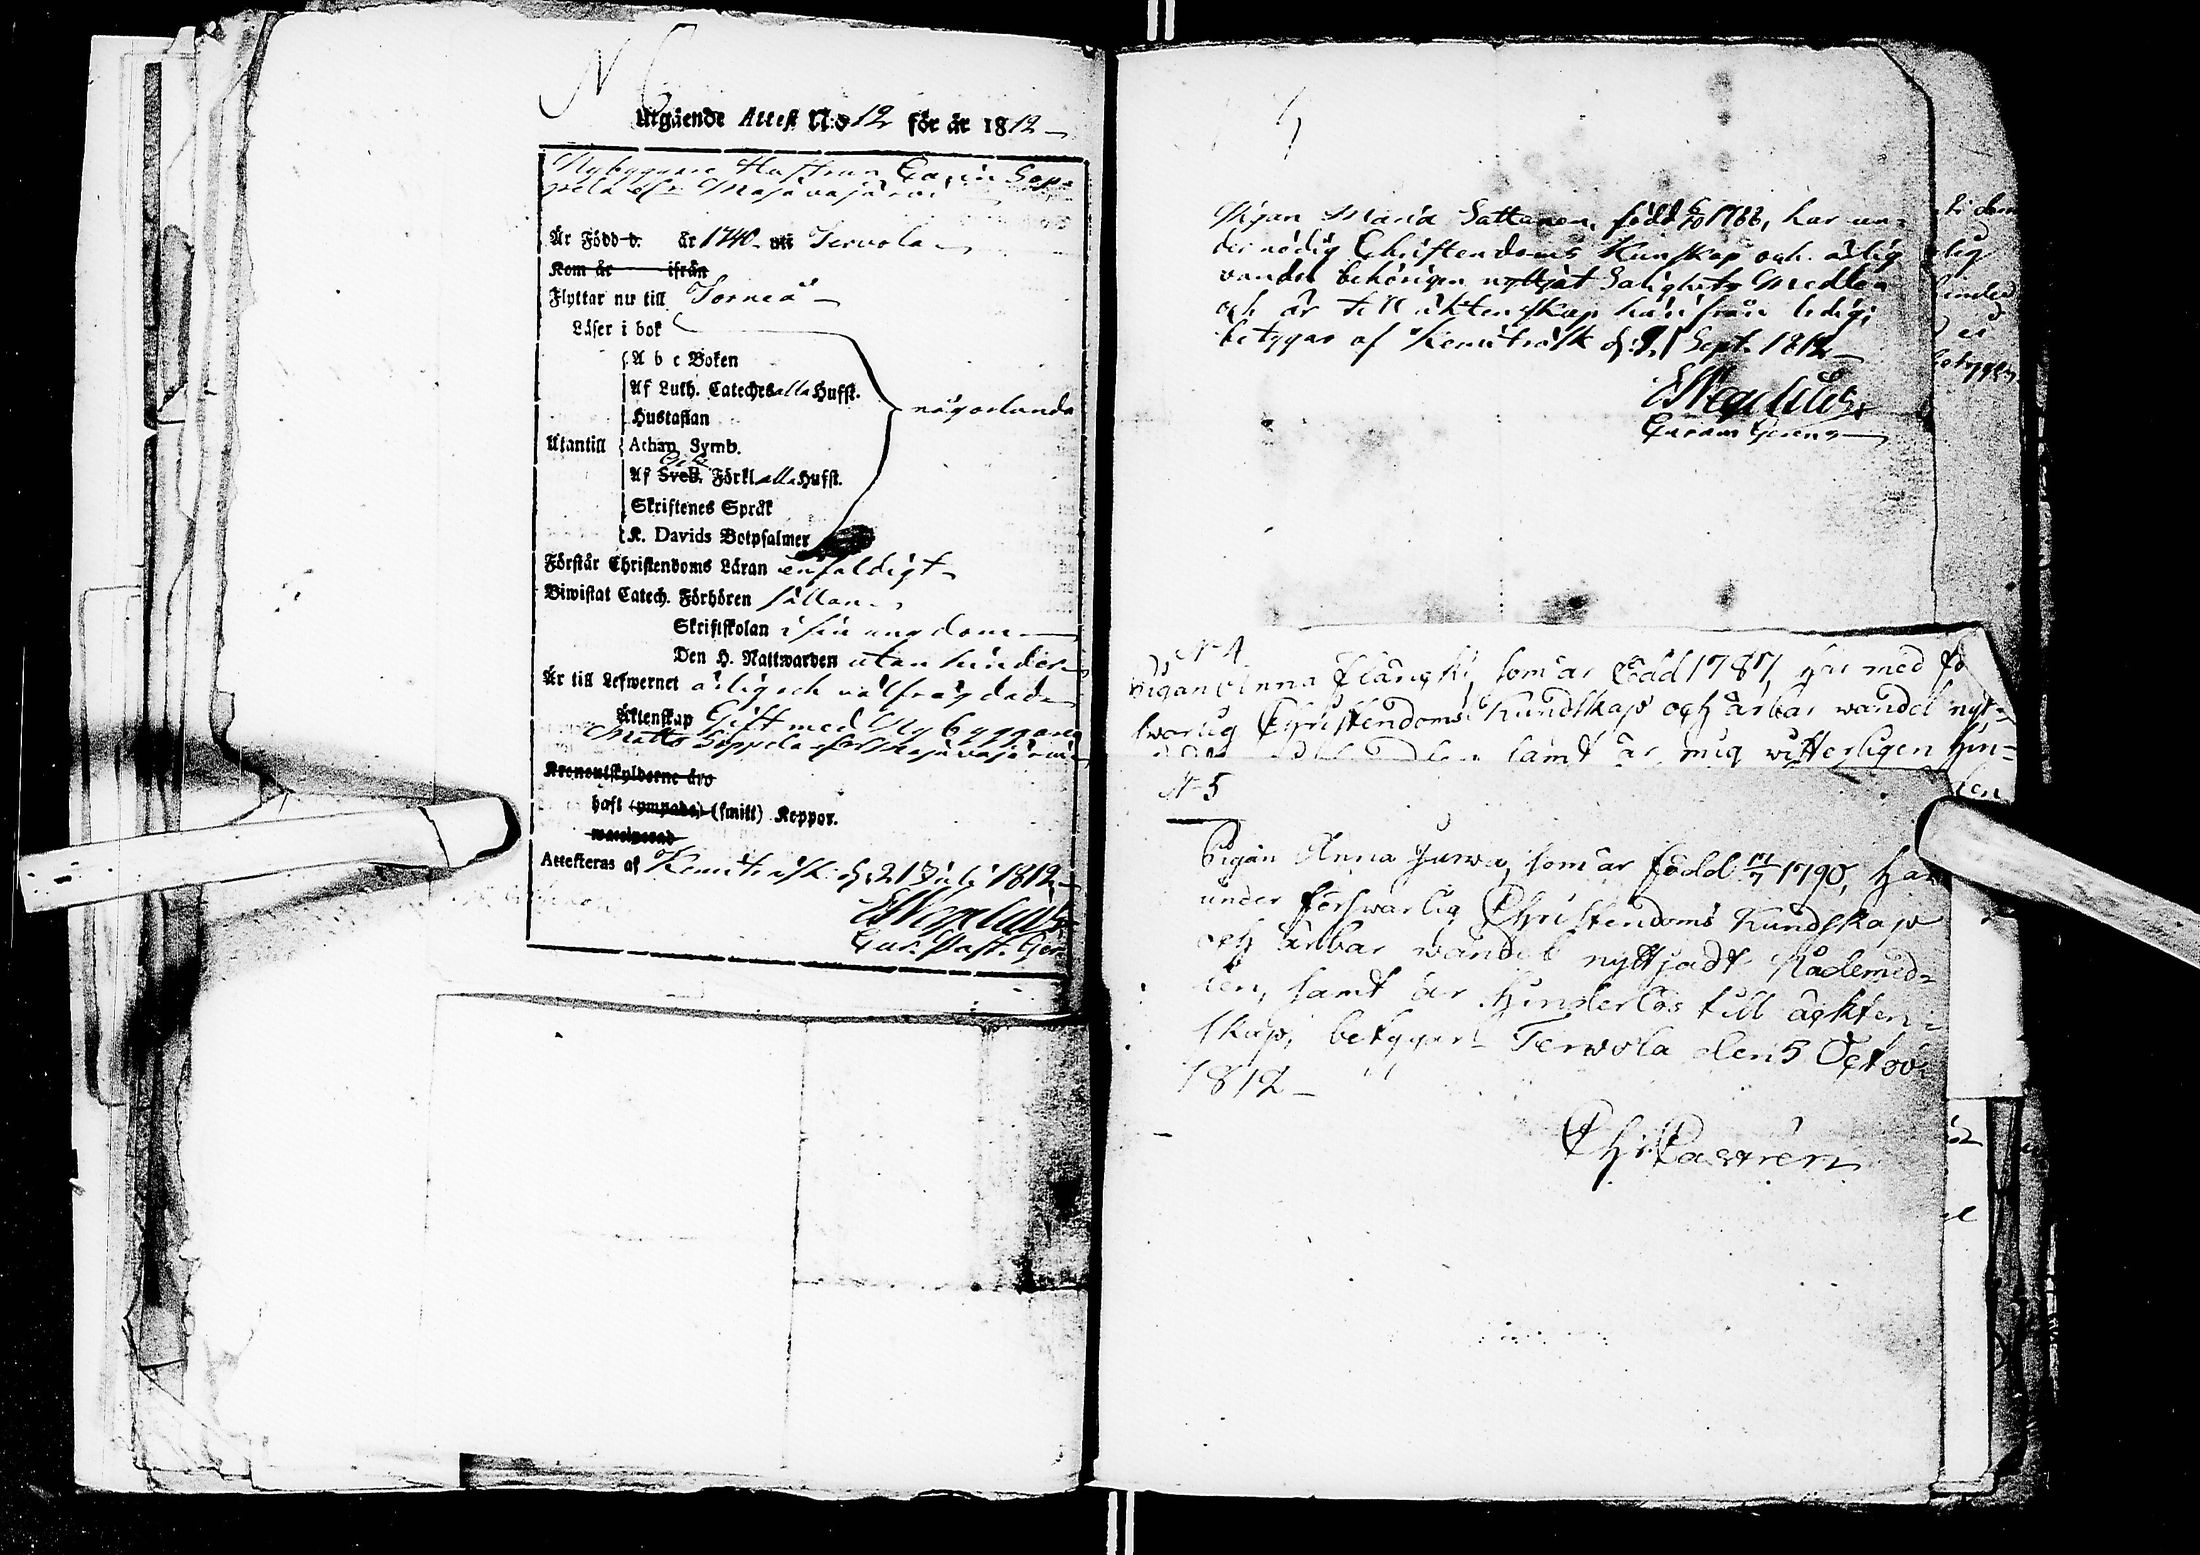 N 6
Utgående Attest N:o 12 för år 1812
Nybyggare Hustrun Carin Sep-
pelä ifr. Majavajärvi
Är Född d. år 1740. uti Tervola
Kom år ifrån
Flyttar nu till Torneå
Läser i bok
A b c Boken
Af Luth. Cateches alla Hufst.
Hustaflan
någorlunda
Utantill Athan. Symb.
Af Sveb. Förkl alla Hufst.
Skriftenes Språk
K. Davids Botpsalmer
Förstår Christendoms Läran enfaldigt
Biwistat Catech. Förhören sällan
Skriftskolan i sin ungdom
Den H. Nattwarden utan hinder
Är till Lefwernet ärlig och välfrägdad
Äktenskap Gift med Nybyggaren
Matts Seppelä ifr Majavajärvi
Kronoutskylderne äro
haft (ympade) (smitt) Koppor.
vaccinerad
Attesteras af Kemiträsk d. 21 Juli 1812
E Wegelius
Cur. Past. Ger.
Pigan Maria Sattanen, född 6/10 1788, har un-
der nödig Christendoms Kunskap och ärlig
vandel behörigen nyttjat Salighets Medlen
och är till äktenskap härifrån ledig;
betygas af Kemiträsk d. 9 Sept. 1812
E Wegelius
Curam Gerens
N 4
Pigan Anna Flangki, som är Född 1787, har med fö
swarlig Christendoms Kundskap och ärbar wandel nytt-
samt är mig witterligen hin-
N 5
Pigan Anna Juwa, som är född 17/7 1790, har
under förswarlig Christendoms Kundskap
och ärbar wandel nyttjadt Nådemed-
len, samt är hinderlös till ägkten-
skap, betygar Terwola den 5 Octob.
1812
Ch: Castrén